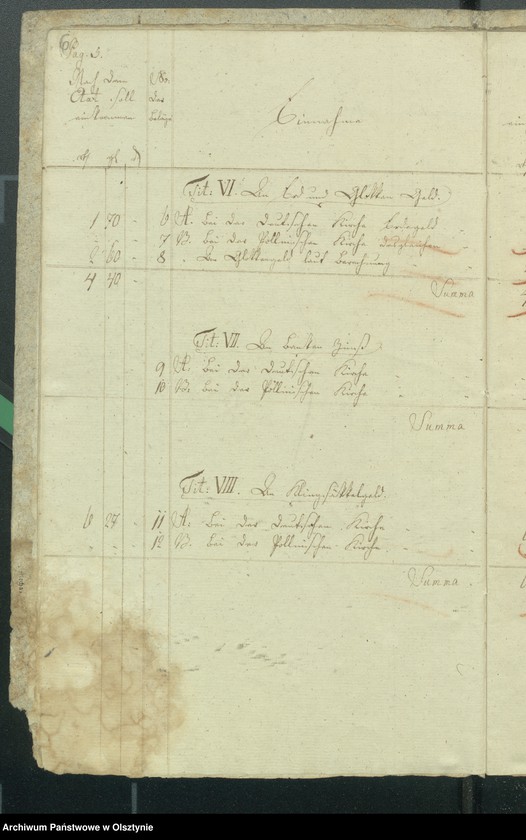 Pag. 3.
Nach dem
Etat soll
einkommen
No.
der
Beläge
Einnahme
Tit: VI. An Erd und Glokken Geld.
1 70 - 6 A. bei der Deutschen Kirche Erdegeld
- - - 7 B. bei der Pollnischen Kirche
2 60 - 8 . An Glokkengeld laut Berechnung
4 40 -
Summa
Tit: VII. An Banken Zinß
9 A. bei der Deutschen Kirche
10 B. bei der Pollnischen Kirche
Summa
Tit: VIII. An Klingsäckelgeld.
6 27 - 11 A. bei der Deutschen Kirche
- - 12 B. bei der Pollnischen Kirche
Summa
Archiwum Państwowe w Olsztynie